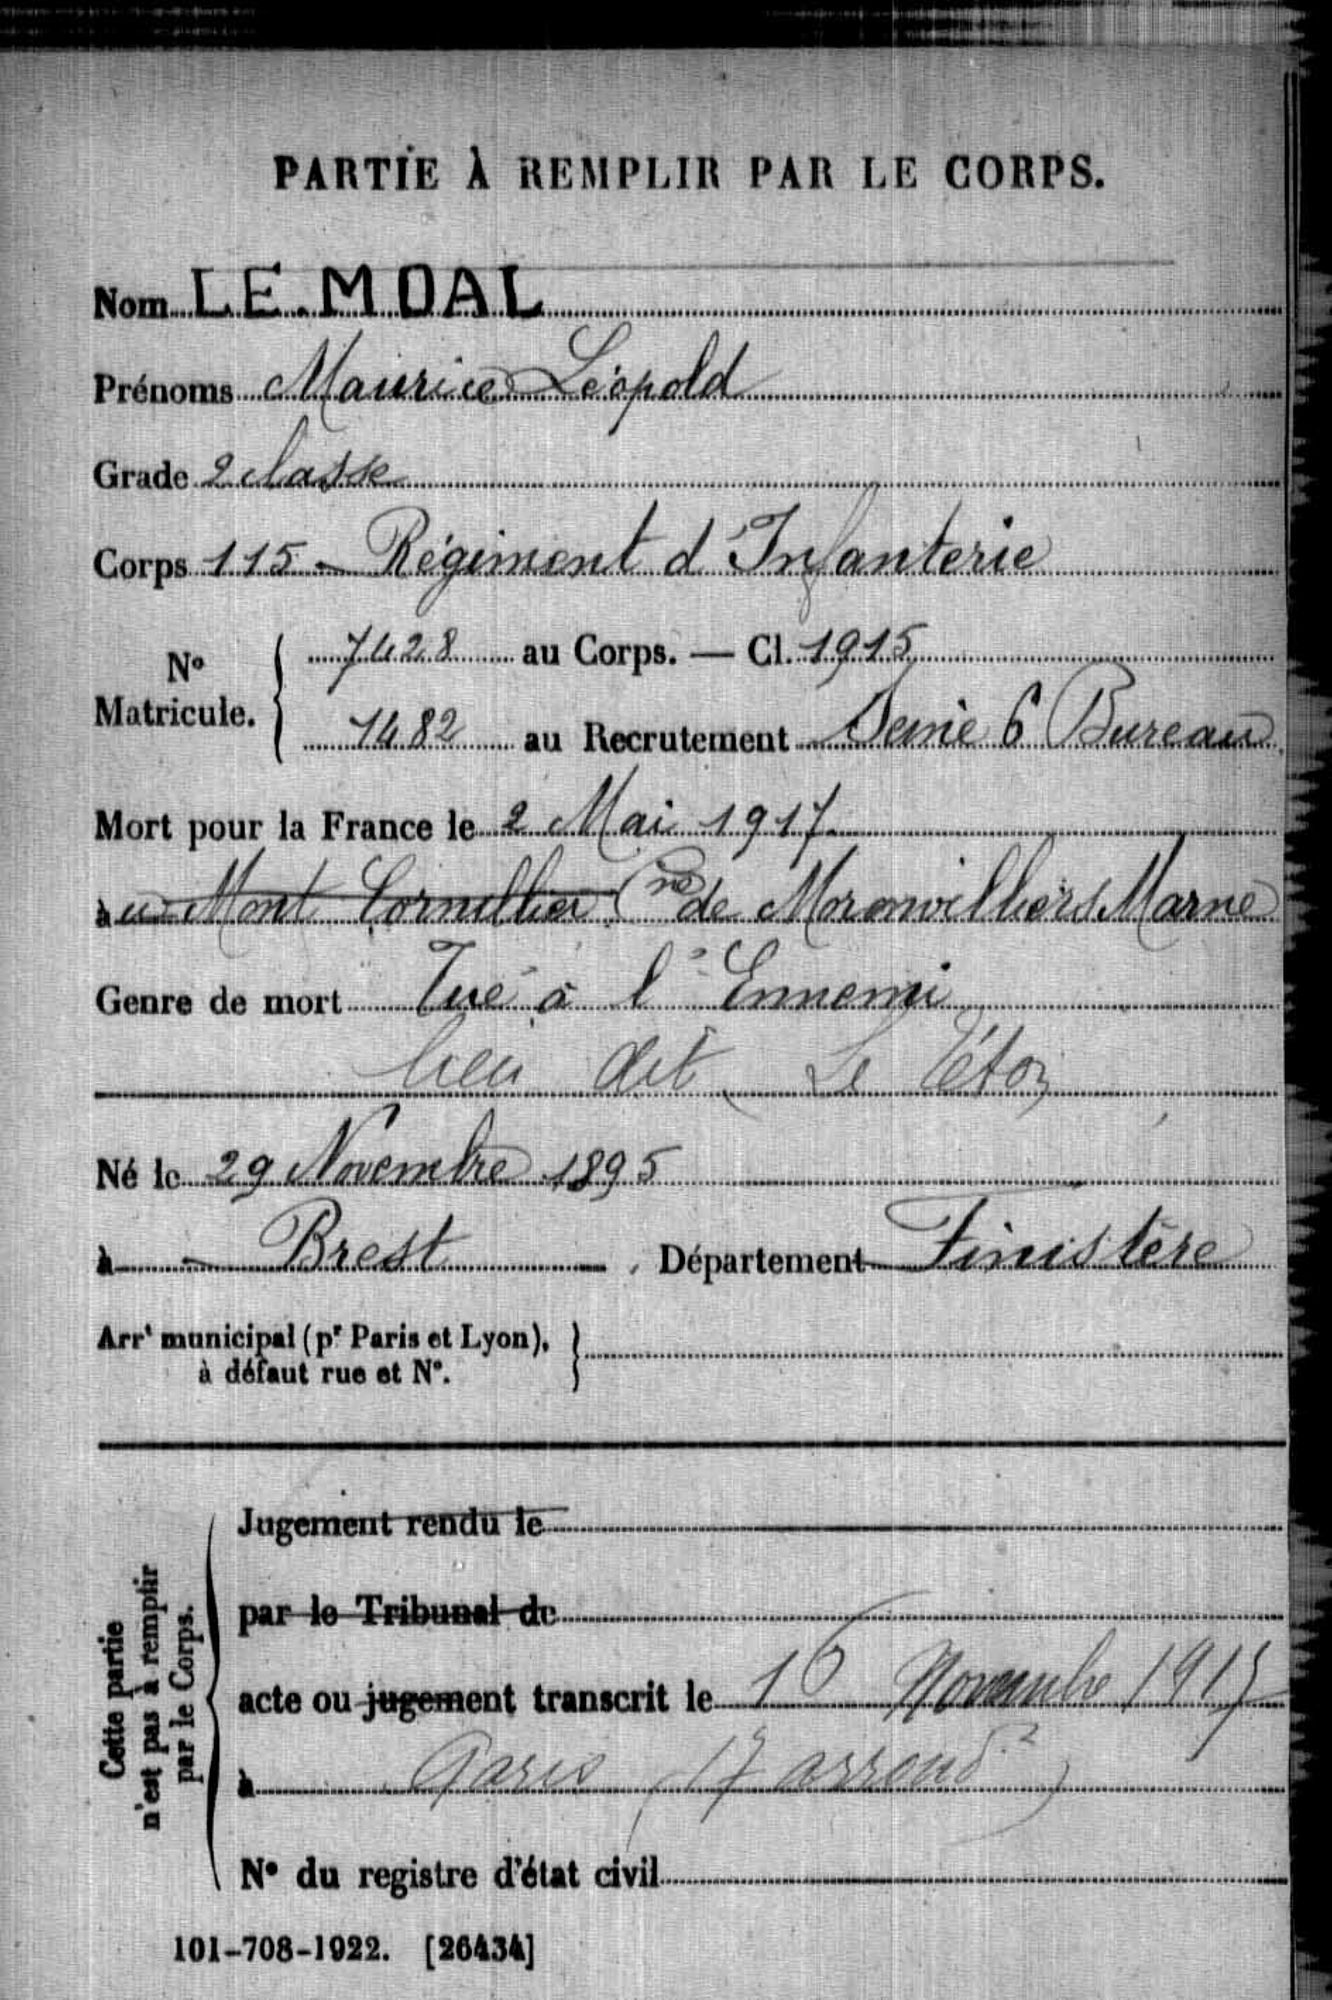 PARTIE À REMPLIR PAR LE CORPS.
Nom LE MOAL
Prénoms Maurice Léopold
Grade 2 classe
Corps 115 - Régiment d'Infanterie
N° Matricule. 7428 au Corps. — Cl. 1915
1482 au Recrutement Seine 6 Bureau
Mort pour la France le 2 Mai 1917
à u Mont Cornillier Cne de Moronvilliers Marne
Genre de mort Tué à l'Ennemi
lieu dit Le Téton
Né le 29 Novembre 1895
à - Brest - Département Finistère
Arrt municipal (pr Paris et Lyon), à défaut rue et N°.
Cette partie n'est pas à remplir par le Corps.
Jugement rendu le
par le Tribunal de
acte ou jugement transcrit le 16 Novembre 1917
à Paris (17 arrond)
N° du registre d'état civil
101-708-1922. [26434]